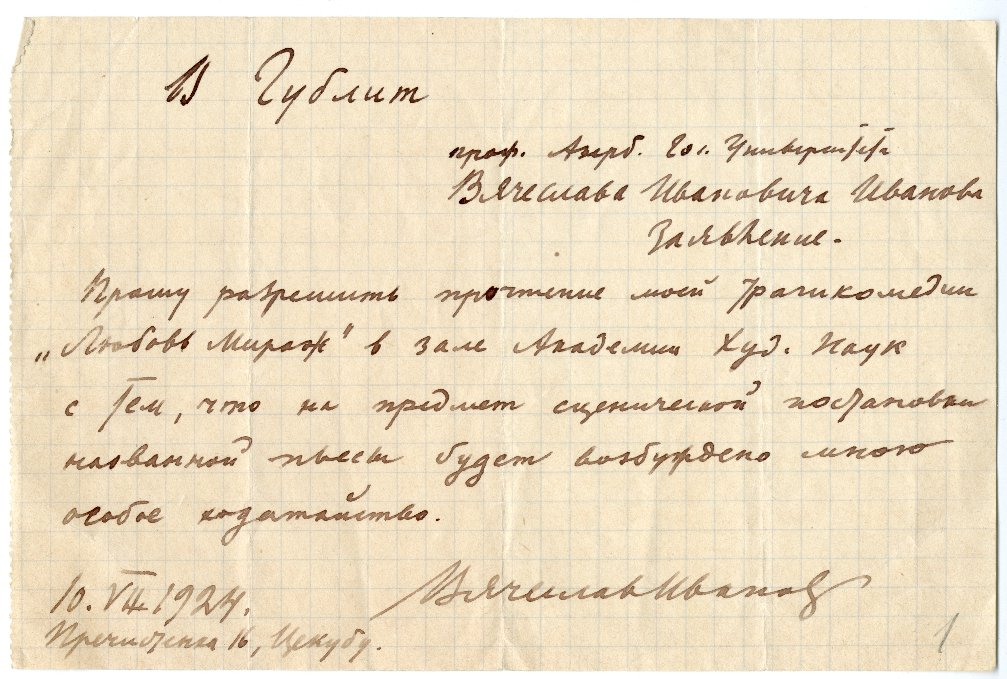 В Гублит
проф. Азерб. Гос. Университета
Вячеслава Ивановича Иванова
Заявление.
Прошу разрешить прочтение моей трагикомедии
„Любовь Мираж" в зале Академии Худ. Наук
с тем, что на предмет сценической постановки
названной пьесы будет возбуждено мною
особое ходатайство.
Вячеслав Иванов
10.VII.1924.
Пречистенка 16, Цекубу.
1